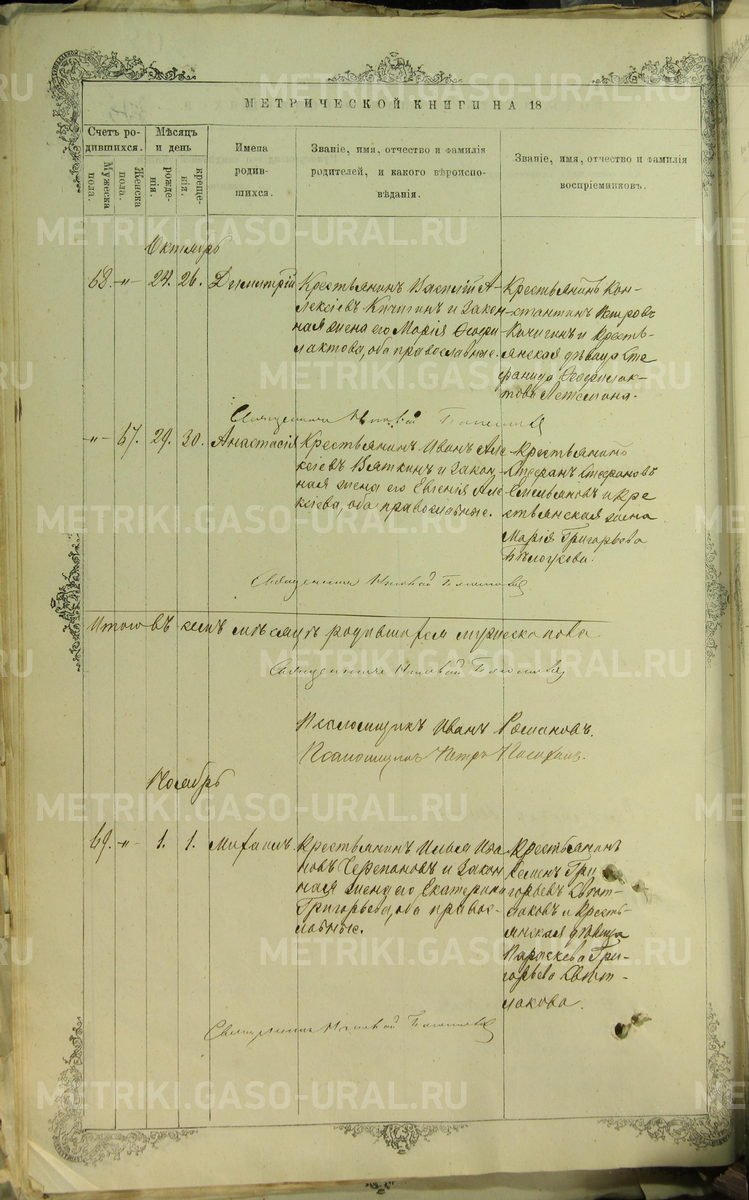 МЕТРИЧЕСКОЙ КНИГИ НА 18
Счетъ ро-
дившихся.
Мужеска
пола.
Женска
пола.
Мѣсяцъ
и день
рожде-
нія.
креще-
нія.
Имена
родив-
шихся.
Званіе, имя, отчество и фамилія
родителей, и какого вѣроиспо-
вѣданія.
Званіе, имя, отчество и фамилія
воспріемниковъ.
Октябрь
68. -"- 24. 26. Димитрій
Крестьянинъ Василій А-
лексіевъ Кичигинъ и закон-
ная жена его Марія Ѳеофи-
лактова, оба православные.
Крестьянинъ Кон-
стантинъ Петровъ
Кичигинъ и кресть-
янская дѣвица Сте-
фанида Ѳеофилак-
това
Священникъ
-"- 67. 29. 30. Анастасія
Крестьянинъ Иванъ Але-
ксіевъ Вяткинъ и закон-
ная жена его Евгенія Але-
ксіева, оба православные.
Крестьянинъ
Стефанъ Стефановъ
Емельяновъ и кре-
стьянская жена
Марія Григорьева
Священникъ
Итого въ семъ мѣсяцѣ родившагося мужеска пола
Священникъ
Псаломщикъ Иванъ Романовъ.
Псаломщикъ Петръ
Ноябрь
69. -"- 1. 1. Михаилъ.
Крестьянинъ Илья Ива-
новъ Черепановъ и закон-
ная жена его Екатерина
Григорьева, оба правос-
лавные.
Крестьянинъ
Семенъ Гри-
горьевъ
и кресть-
янская дѣвица
Параскева Гри-
горьева
Священникъ
METRIKI.GASO-URAL.RU